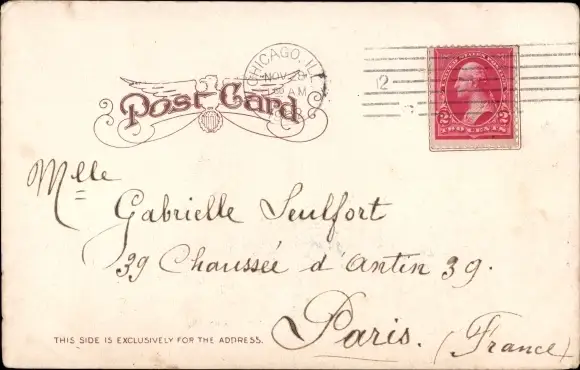 CHICAGO, ILL.
NOV 29
AM
12
Post Card
TWO CENTS
2 2
Mlle
Gabrielle Seulfort
39 Chaussée d'Antin 39.
Paris. (France)
THIS SIDE IS EXCLUSIVELY FOR THE ADDRESS.